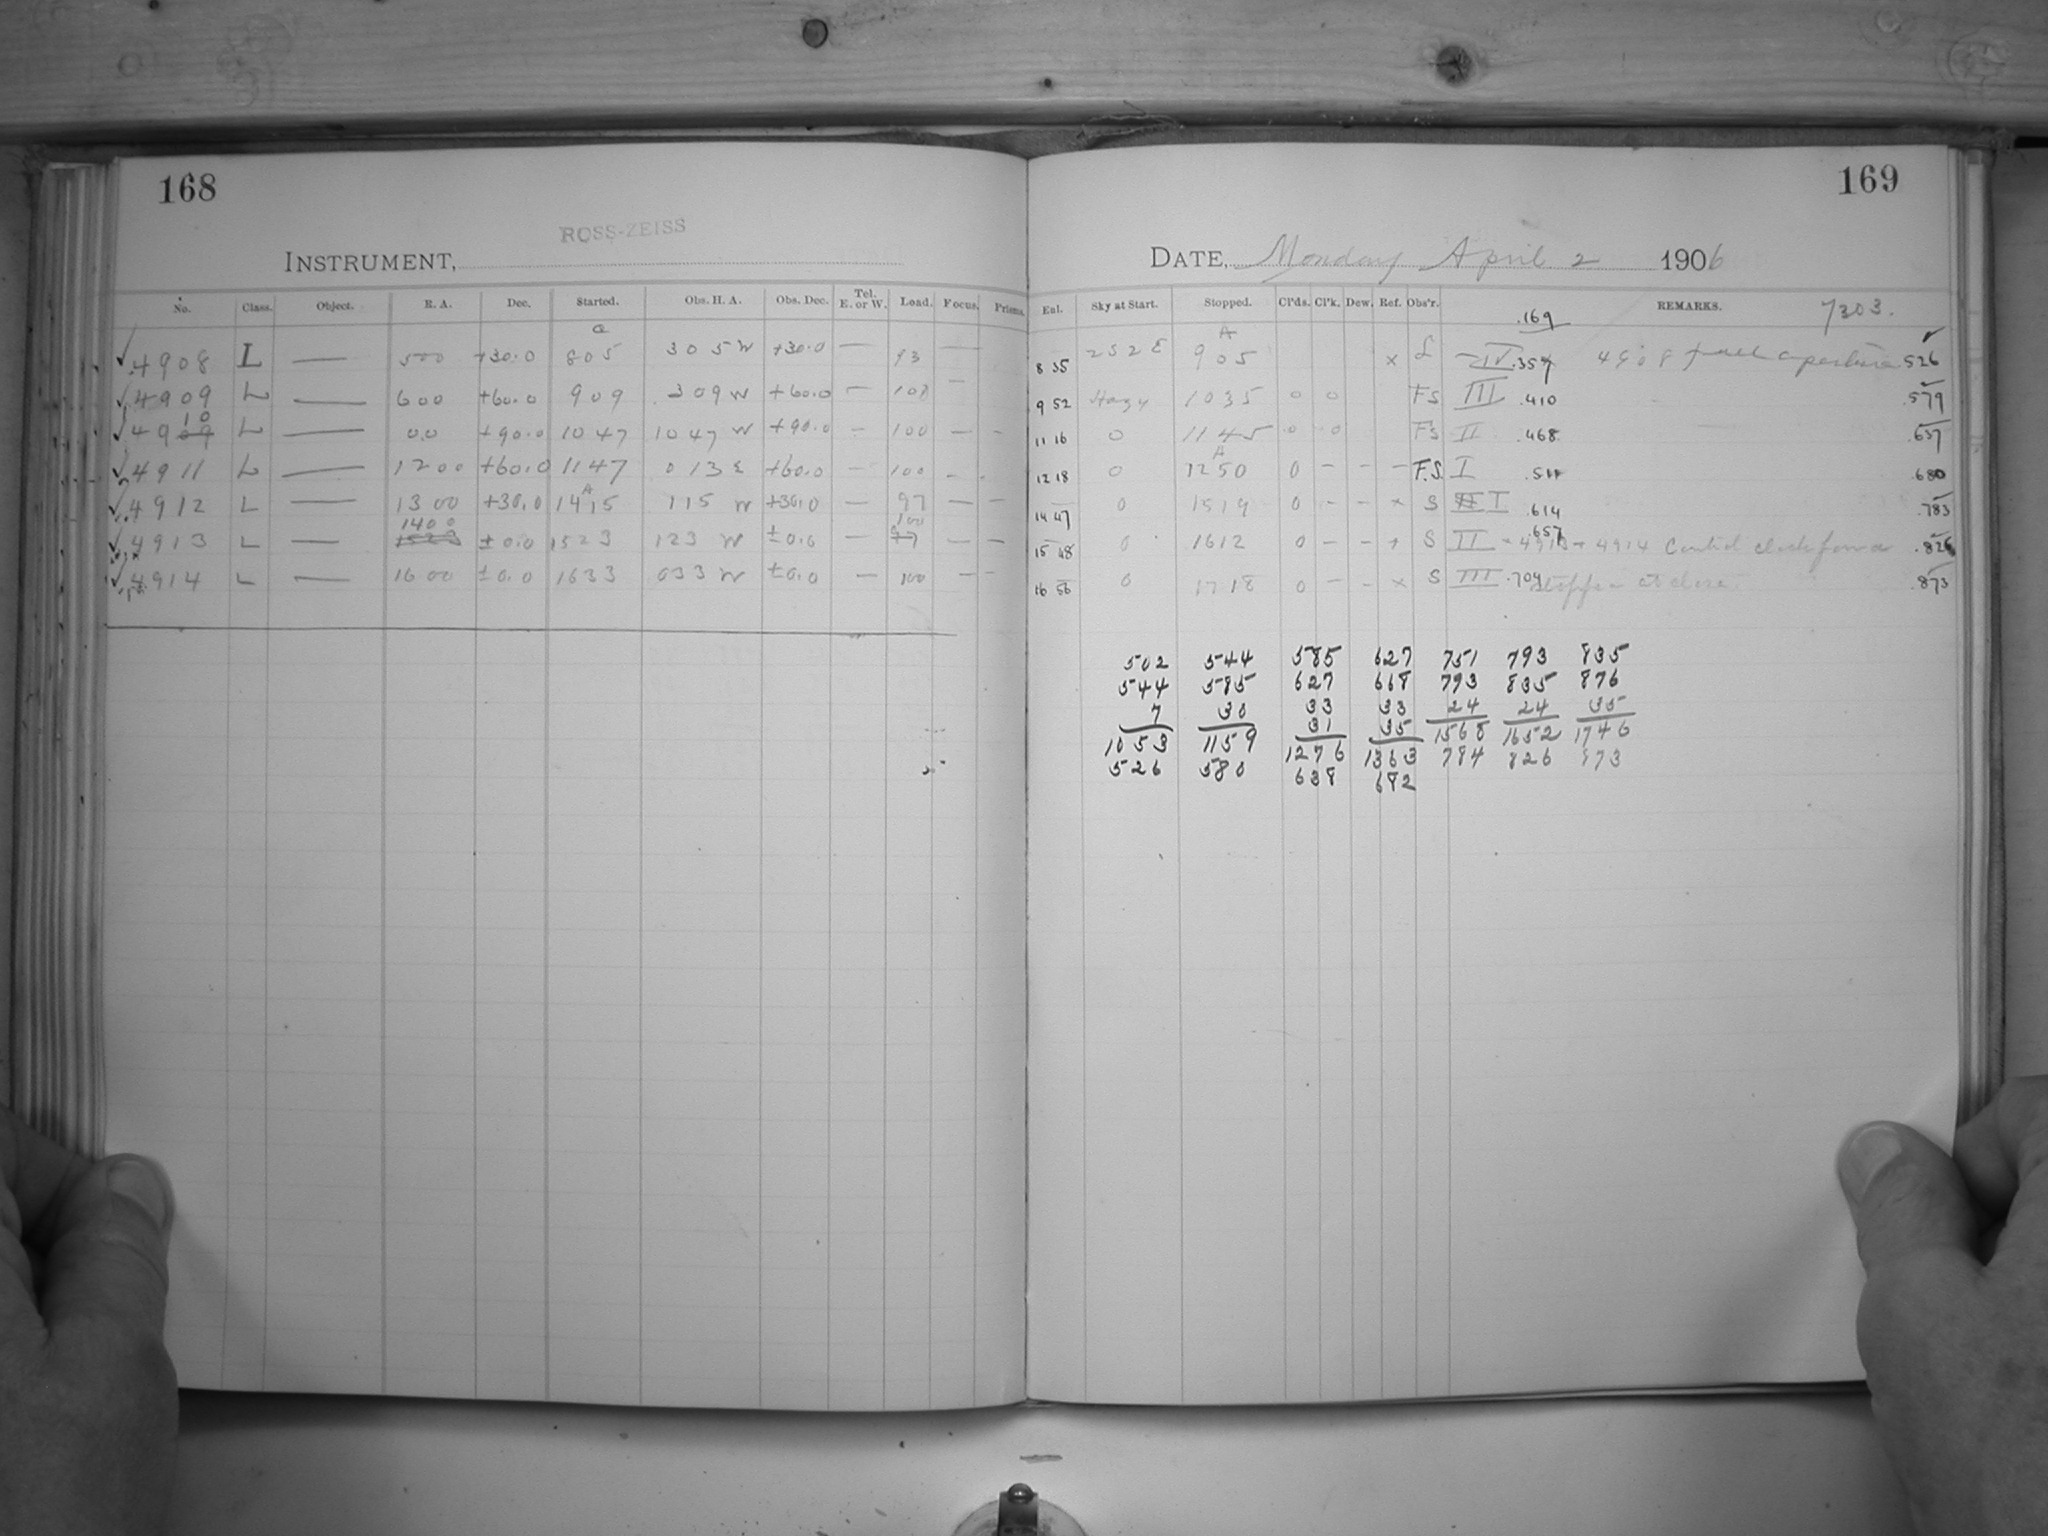 168
ROSS-ZEISS
INSTRUMENT,
No. Class. Object. R. A. Dec. Started. Obs. H. A. Obs. Dec. Tel. E. or W. Load. Focus. Prisms.
a
4908 L — 500 +30.0 805 305 W +30.0 — 93 —
4909 L — 600 +60.0 909 309 W +60.0 — 108 —
10
4909 L — 00 +90.0 1047 1047 W +90.0 — 100 — —
4911 L — 1200 +60.0 1147 013 E +60.0 — 100 — -
A
4912 L — 1300 +30.0 1415 115 W +30.0 — 97 — —
1400 100
4913 L — 1523 ±0.0 1523 123 W ±0.0 — 97 — —
4914 L — 1600 ±0.0 1633 033 W ±0.0 — 100 — —
169
DATE, Monday April 2 1906
Exl. Sky at Start. Stopped. Cl'ds. Cl'k. Dew. Ref. Obs'r. REMARKS. 7303.
.169
A
8 35 252 E 905 x L IV .357 4908 full aperture .526
9 52 Hazy 1035 0 0 FS III .410 .579
11 16 0 1145 0 0 FS II .468 .637
A
12 18 0 1250 0 — — — F.S. I .511 .680
14 47 0 1519 0 - - x S I .614 .783
.657
15 48 0 1612 0 — - x S II - 4913 + 4914 Control clock found .826
16 56 0 1718 0 — - x S III .704 stopped at close. .873
502 544 585 627 751 793 835
544 585 627 668 793 835 876
7 30 33 33 24 24 35
31 35
1053 1159 1276 1363 1568 1652 1746
526 580 638 682 784 826 873